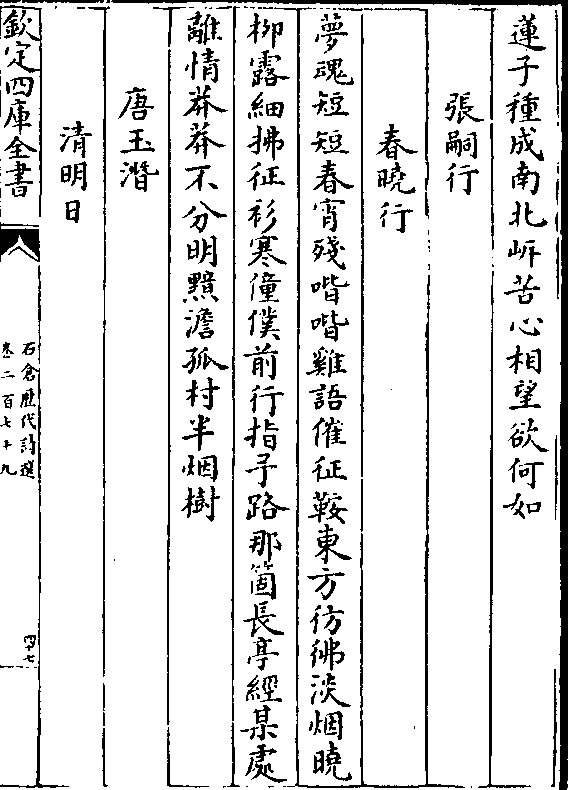 蓮子種成南北㟁苦心相望欲何如
張嗣行
春曉行
夢魂短短春宵殘喈喈雞語催征鞍東方彷彿淡烟曉
柳露細拂征衫寒僮僕前行指予路那箇長亭經某處
離情莽莽不分明黯澹孤村半烟樹
唐玉潛
清明日
欽定四庫全書
石倉歴代詩選
卷二百七十九
四十七